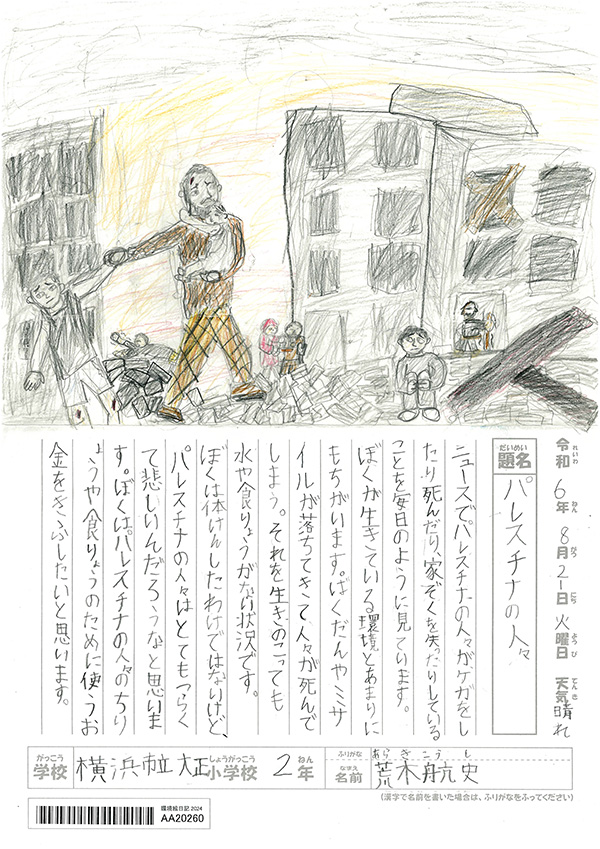 令和れいわ 6年ねん 8月がつ 21日にち 火曜日ようび 天気てんき 晴れ
だいめい
題名 パレスチナの人々
ニュースでパレスチナの人々がケガをし
たり死んだり、家ぞくを失ったりしている
ことを毎日のように見ています。
ぼくが生きている環境とあまりに
もちがいます。ばくだんやミサ
イルが落ちてきて人々が死んで
しまう。それを生きのこっても
水や食りょうがない状況です。
ぼくは体けんしたわけではないけど、
パレスチナの人々はとてもつらく
て悲しいんだろうなと思いま
す。ぼくはパレスチナの人々のちり
ょうや食りょうのために使うお
金をきふしたいと思います。
がっこう しょうがっこう ねん ふりがな あらきこうし
学校 横浜市立大正小学校 2年 なまえ 名前 荒木航史
(漢字で名前を書いた場合は、ふりがなをふってください)
環境絵日記 2024
AA20260